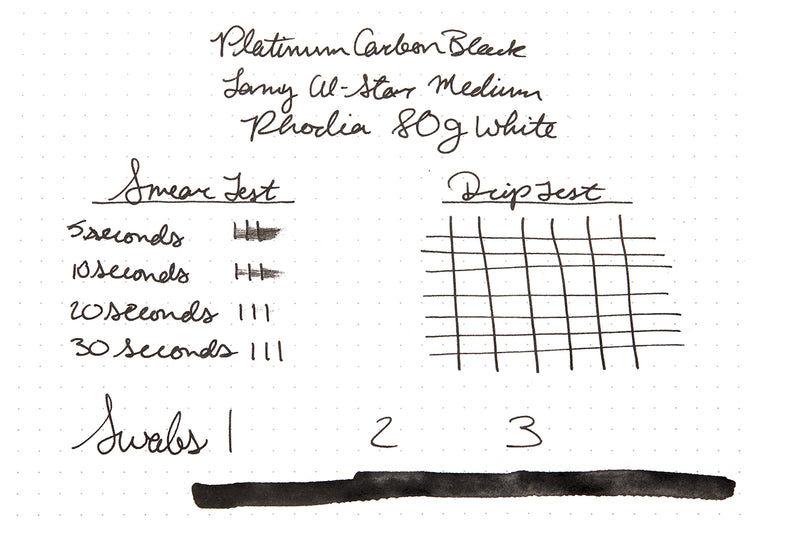 Platinum Carbon Black
Lamy Al-Star Medium
Rhodia 80g White
Smear Test
5 seconds
10 seconds
20 seconds
30 seconds
Drip Test
Swabs 1 2 3